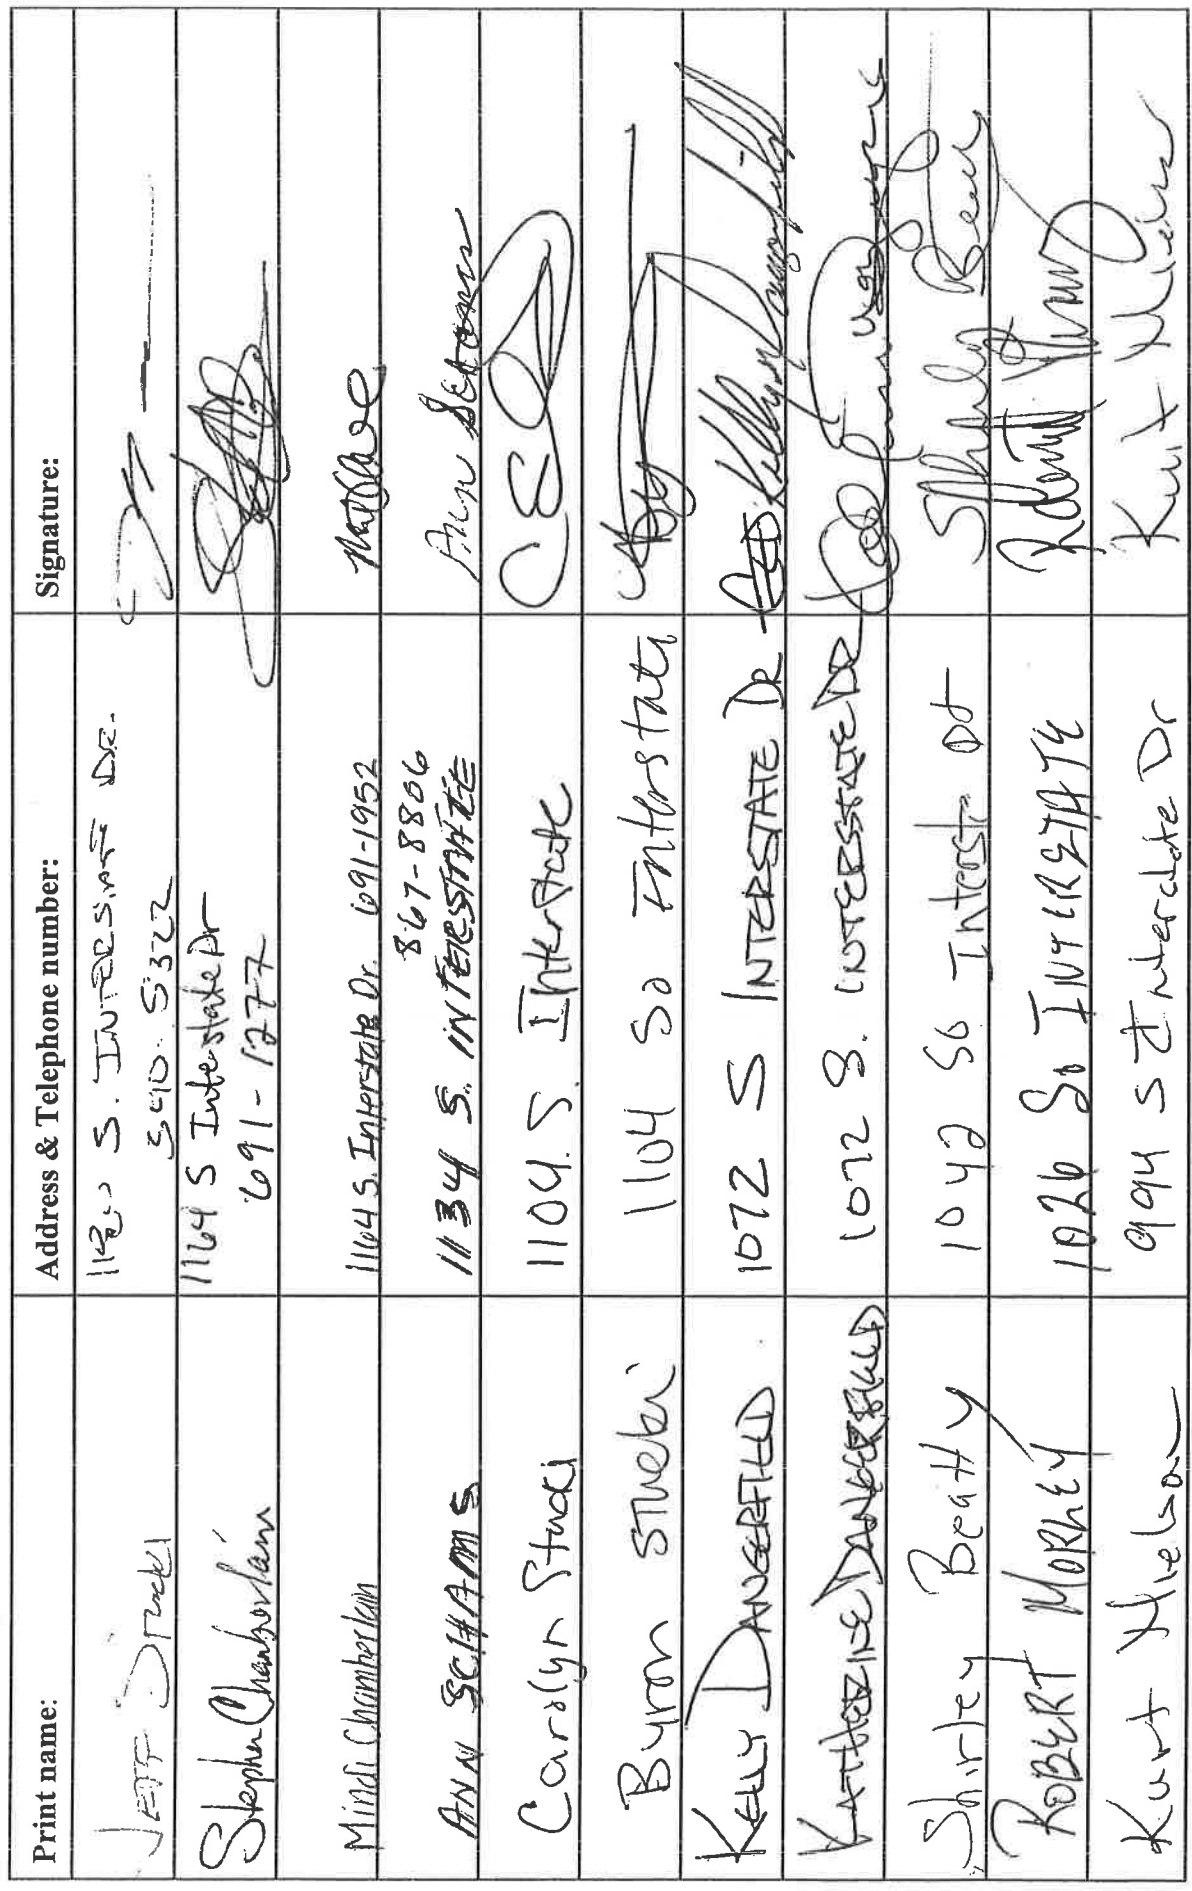 Print name: Address & Telephone number: Signature:
JEFF S. INTERSTATE DR.
590-5322
Stephen Chamberlain 1164 S Interstate Dr
691-1277
Mindi Chamberlain 1164 S. Interstate Dr. 691-1952
867-8806
ANN SCHAMS 1134 S. INTERSTATE Ann Schams
Carolyn Stucki 1104 S. Interstate
Byron Stucki 1104 So Interstate
KELLY DANGERFIELD 1072 S INTERSTATE DR Kelly Dangerfield
KATHERINE DANGERFIELD 1072 S. INTERSTATE DR
Shirley Beatty 1042 So Interstate Shirley Beatty
ROBERT MORLEY 1026 So INTERSTATE Robert Morley
Kurt Nielson 994 S Interstate Dr Kurt Nielson